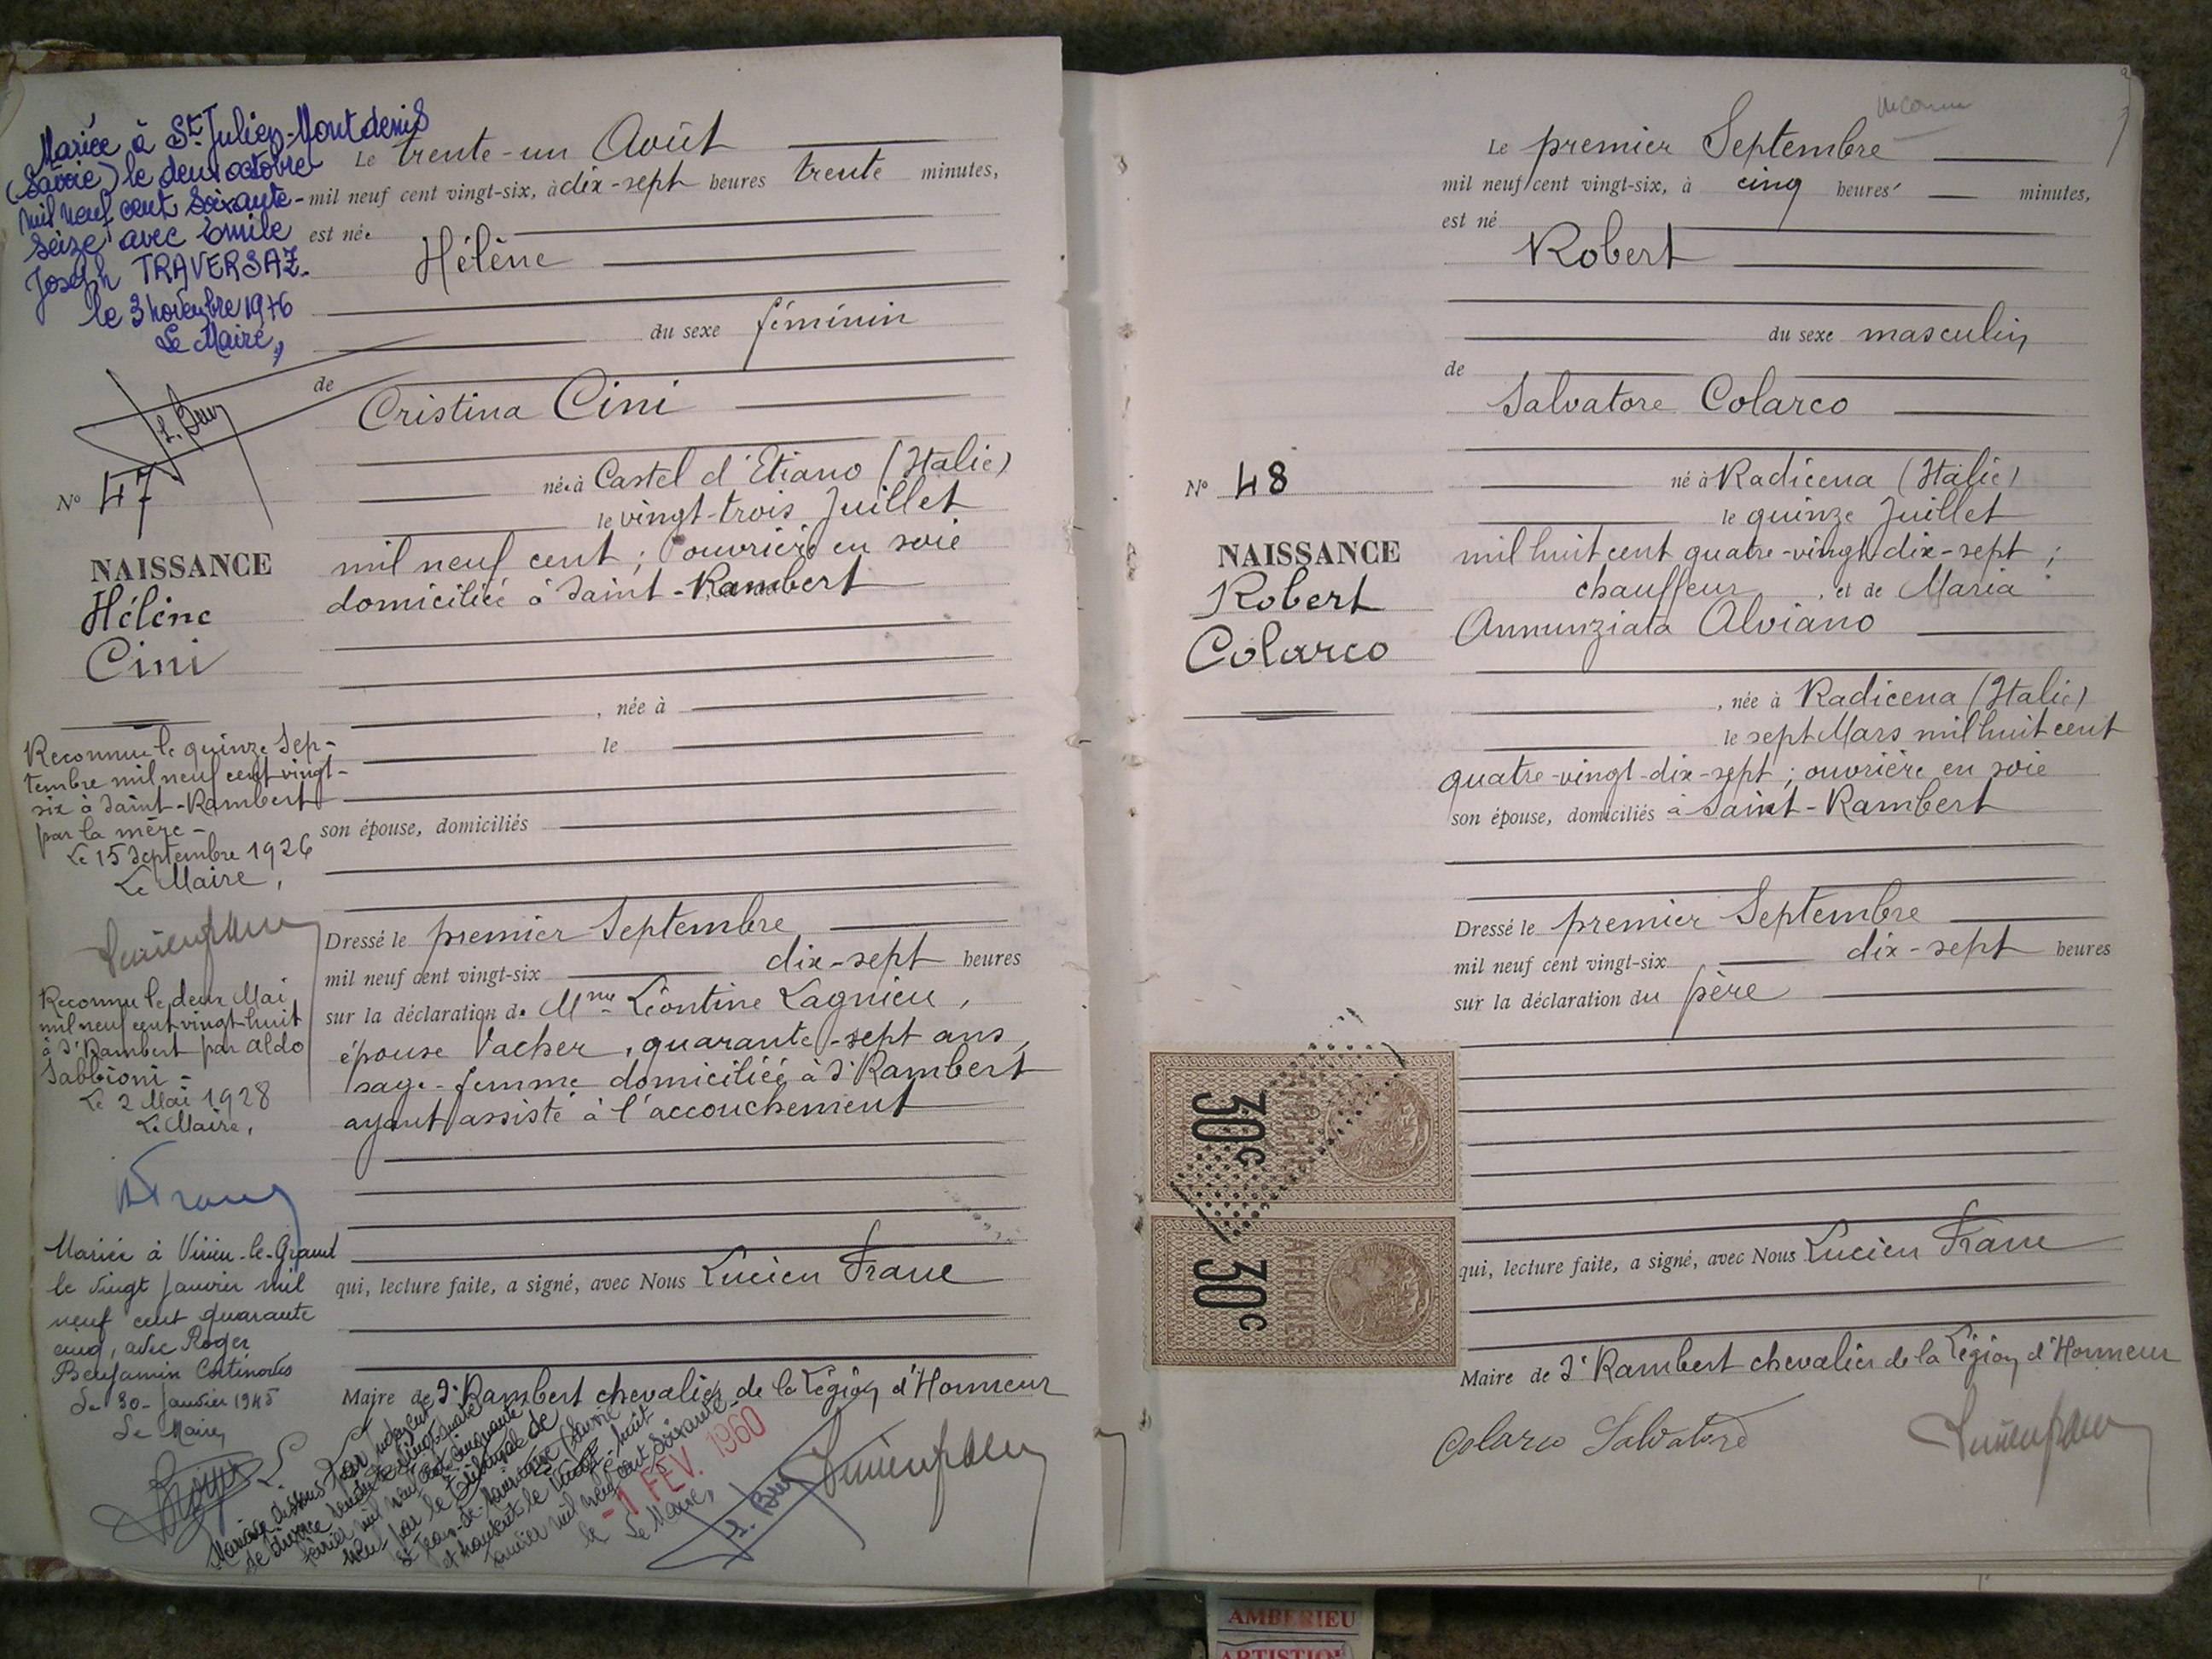 Mariée à St Julien-Montdenis
(Savoie) le deux octobre
mil neuf cent soixante-
seize avec Emile
Joseph TRAVERSAZ.
le 3 novembre 1976
Le Maire,
Le trente-un Août
mil neuf cent vingt-six, à dix-sept heures trente minutes,
est née
Hélène
du sexe féminin
de
Cristina Cini
née à Castel d'Etiano (Italie)
le vingt-trois Juillet
mil neuf cent ; ouvrière en soie
domiciliée à Saint-Rambert
, née à
le
son épouse, domiciliés
Dressé le premier Septembre
mil neuf cent vingt-six dix-sept heures
sur la déclaration de Mme Léontine Lagnieu,
épouse Vacher, quarante-sept ans,
sage-femme domiciliée à St Rambert
ayant assisté à l'accouchement
qui, lecture faite, a signé, avec Nous Lucien Franc
Maire de St Rambert chevalier de la Légion d'Honneur
No 47
NAISSANCE
Hélène
Cini
Reconnue le quinze Sep-
tembre mil neuf cent vingt-
six à Saint-Rambert
par la mère-
Le 15 Septembre 1926
Le Maire,
Reconnu le deux Mai
mil neuf cent vingt-huit
à St Rambert par Aldo
Sabbioni-
Le 2 Mai 1928
Le Maire,
Mariée à Virieu-le-Grand
le vingt Janvier mil
neuf cent quarante
cinq, avec Roger
Benjamin
Le 30 Janvier 1945
Le Maire,
Mariage dissous par jugement
de divorce rendu le vingt-quatre
février mil neuf cent cinquante
neuf par le Tribunal de
St Jean-de-Maurienne (Savoie
et transcrit le vingt-huit
Janvier mil neuf cent soixante-
le -1 FEV. 1960
Le Maire,
inconnu
Le premier Septembre
mil neuf cent vingt-six, à cinq heures minutes,
est né
Robert
du sexe masculin
de
Salvatore Colarco
né à Radicena (Italie)
le quinze Juillet
mil huit cent quatre-vingt-dix-sept ;
chauffeur , et de Maria
Annunziata Alviano
, née à Radicena (Italie)
le sept Mars mil huit cent
quatre-vingt-dix-sept ; ouvrière en soie
son épouse, domiciliés à Saint-Rambert
Dressé le premier Septembre
mil neuf cent vingt-six dix-sept heures
sur la déclaration du père
qui, lecture faite, a signé, avec Nous Lucien Franc
Maire de St Rambert chevalier de la Légion d'Honneur
Colarco Salvatore
No 48
NAISSANCE
Robert
Colarco
AFFICHES
30c
AFFICHES
30c
AMBERIEU